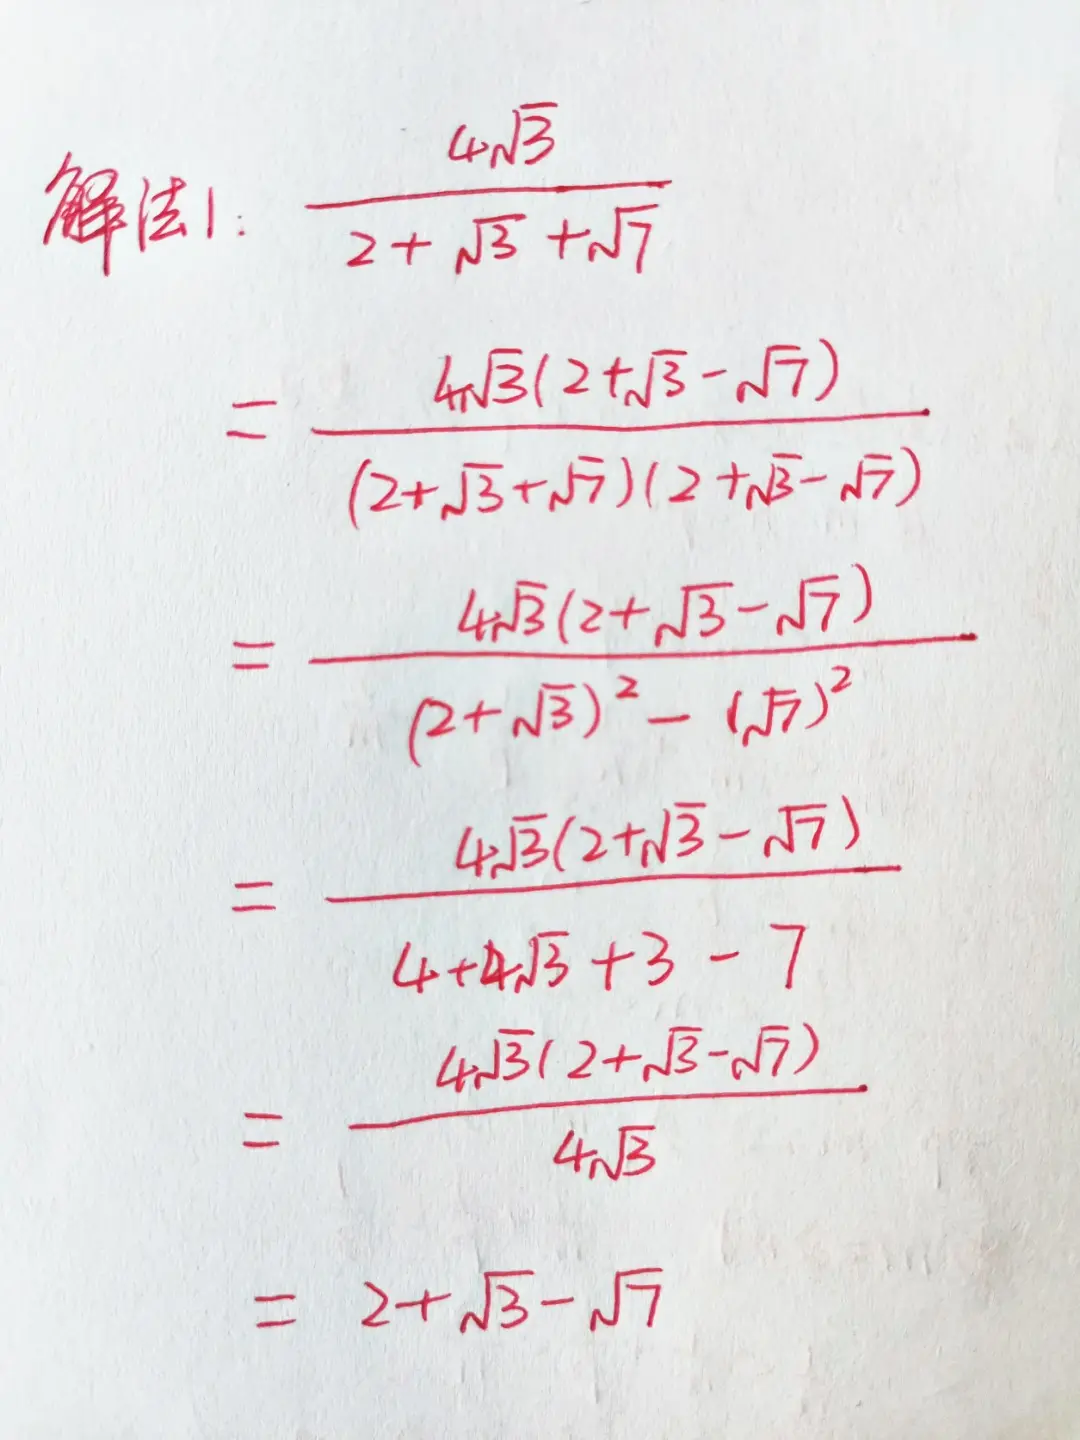 解法1: 4√3
2+√3+√7
= 4√3(2+√3-√7)
(2+√3+√7)(2+√3-√7)
= 4√3(2+√3-√7)
(2+√3)²-(√7)²
= 4√3(2+√3-√7)
4+4√3+3-7
= 4√3(2+√3-√7)
4√3
= 2+√3-√7